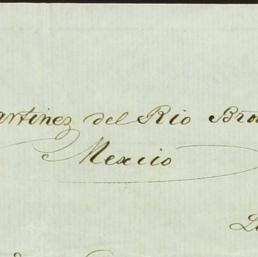 artinez del Rio Bro
Mexcio